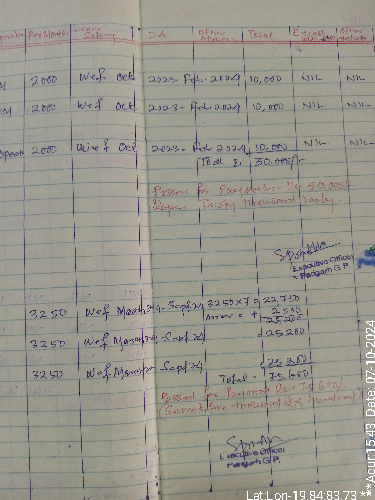 Per Month Leave Salary D.A Other Allowance Total Excess
M 2000 Wef Oct 2023 - Feb. 2024 10,000 NIL NIL
EM 2000 Wef Oct 2023 - Feb. 2024 10,000 NIL NIL
2000 Wef Oct 2023 - Feb. 2024 10,000 NIL NIL
Total 30,000/-
Passed for Payment Rs 30,000/-
Rupees Thirty thousand only.
Executive Officer
Hangarh G.P.
3250 Wef March 24 - Sept 24 3250 x 7 = 22,750
Arrear = + 2,500
25,200
3250 Wef March 24 - Sept 24 25,200
3250 Wef March - Sept 24 25,200
Total - 75,600
Passed for Payment Rs 75,600/-
(Seventy five thousand six hundred)
Executive Officer
Hangarh G.P.
Lat,Lon-19.84,83.73 ***Acur:15.43 Date: 07-10-2024